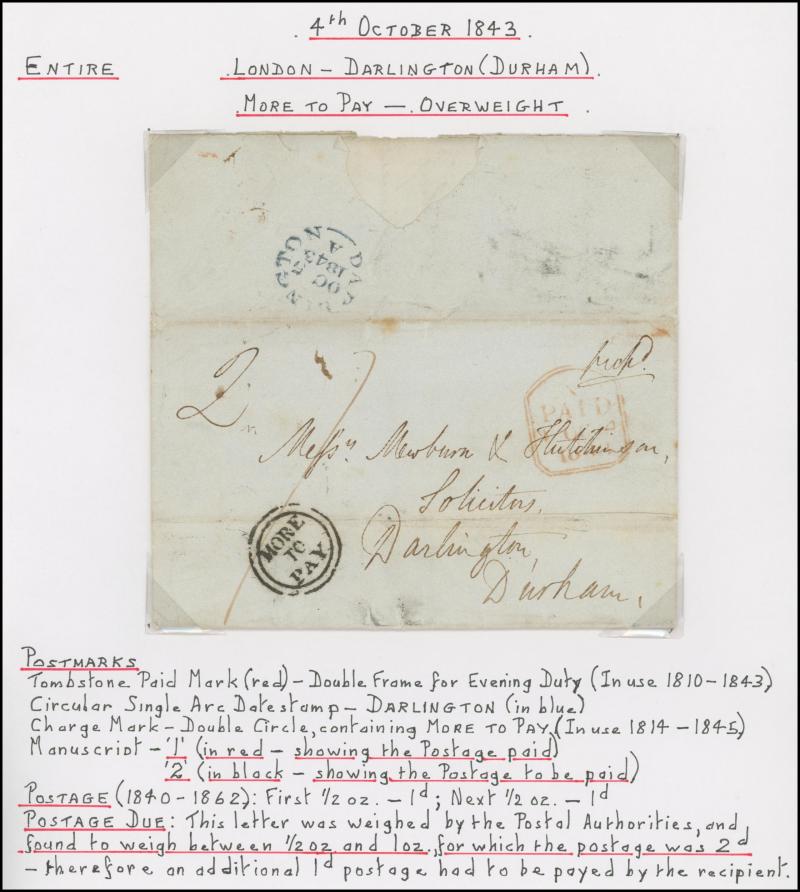 . 4th OCTOBER 1843 .
ENTIRE
. LONDON – DARLINGTON (DURHAM) .
. MORE TO PAY – . OVERWEIGHT .
DARLINGTON
A
OC 5
1843
2
1
PAID
Messrs. Newburn & Hutchinson,
Solicitors,
Darlington,
Durham,
MORE
TO
PAY
POSTMARKS
Tombstone Paid Mark (red) – Double Frame for Evening Duty (In use 1810 – 1843)
Circular Single Arc Datestamp – DARLINGTON (in blue)
Charge Mark – Double Circle, containing MORE TO PAY. (In use 1814 – 1845)
Manuscript – '1' (in red – showing the Postage paid)
'2' (in black – showing the Postage to be paid)
POSTAGE (1840 – 1862): First 1/2 oz. – 1d; Next 1/2 oz. – 1d
POSTAGE DUE: This letter was weighed by the Postal Authorities, and
found to weigh between 1/2 oz and 1 oz., for which the postage was 2d
– therefore an additional 1d postage had to be payed by the recipient.